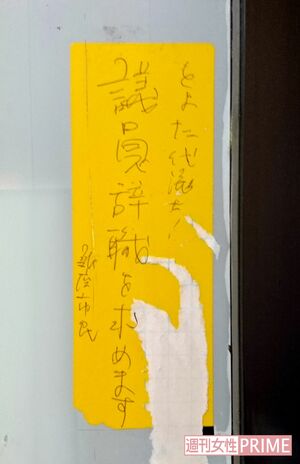 とよた代議士!
議員辞職を求めます
週刊女性PRIME